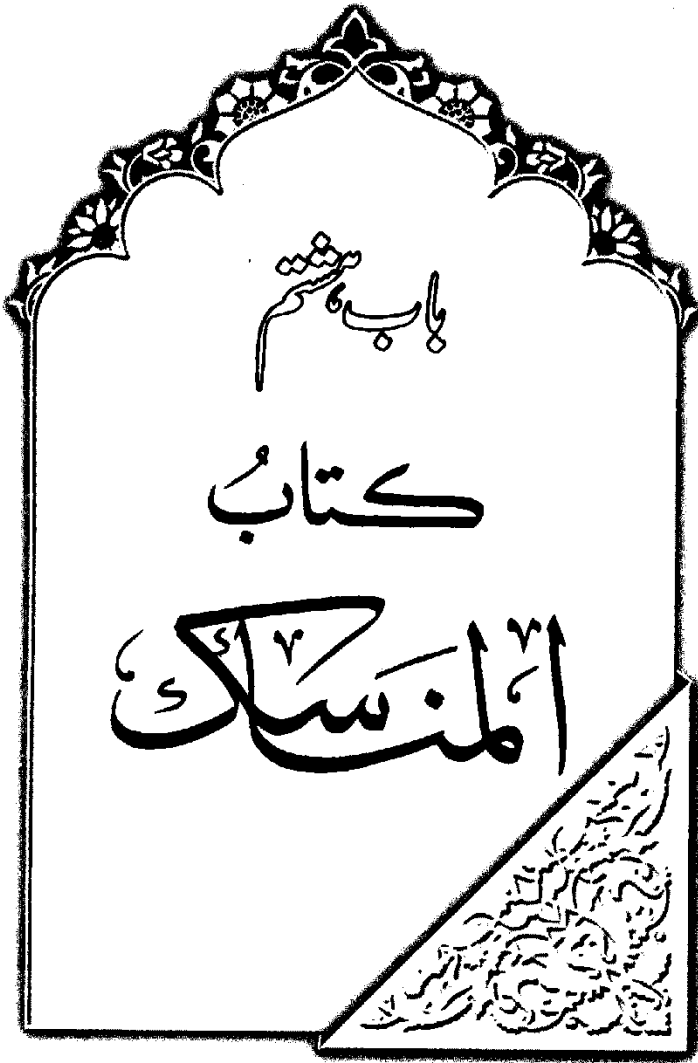 باب ہشتم
کتابُ
المناسک